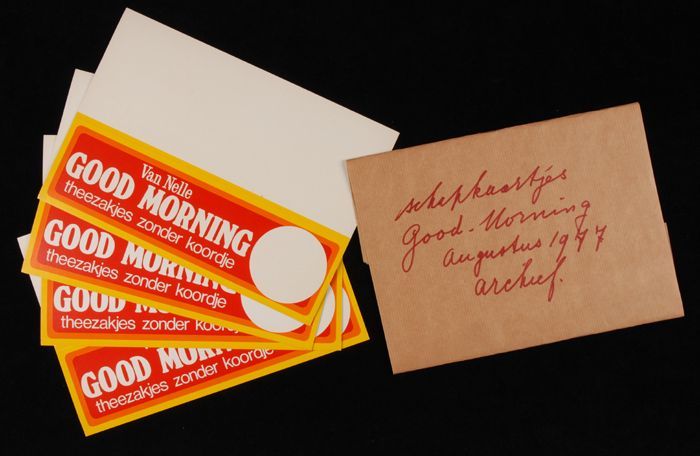 Van Nelle
GOOD MORNING
theezakjes zonder koordje
GOOD MORNING
theezakjes zonder koordje
GOOD MORNING
theezakjes zonder koordje
GOOD MORNING
theezakjes zonder koordje
schapkaartjes
Good-Morning
augustus 1977
archief.